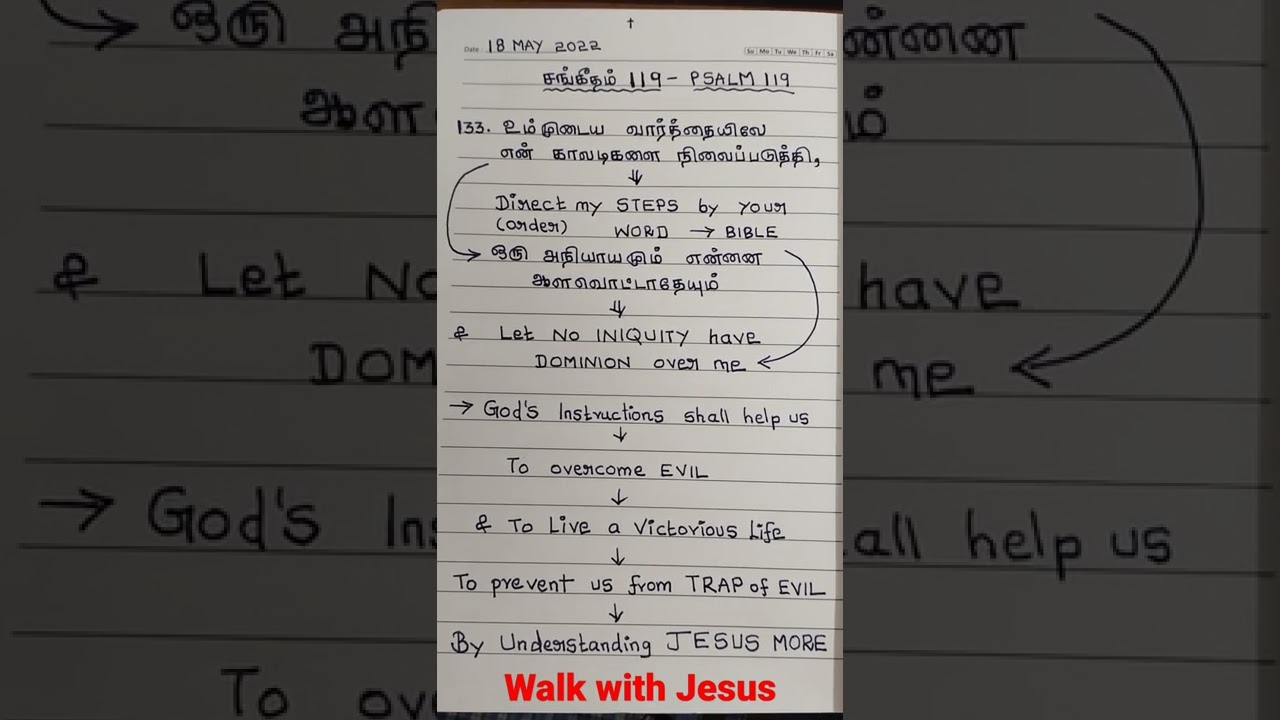 †
Date 18 MAY 2022
Su Mo Tu We Th Fr Sa
சங்கீதம் 119 - PSALM 119
133. உம்முடைய வார்த்தையிலே
என் காலடிகளை நிலைப்படுத்தி,
⇓
Direct my STEPS by YOUR
(order) WORD → BIBLE
→ ஒரு அநியாயமும் என்னை
ஆளவொட்டாதேயும்
⇓
& Let NO INIQUITY have
DOMINION over me ←
→ God's Instructions shall help us
↓
To overcome EVIL
↓
& To Live a Victorious Life
↓
To prevent us from TRAP of EVIL
↓
By Understanding JESUS MORE
Walk with Jesus